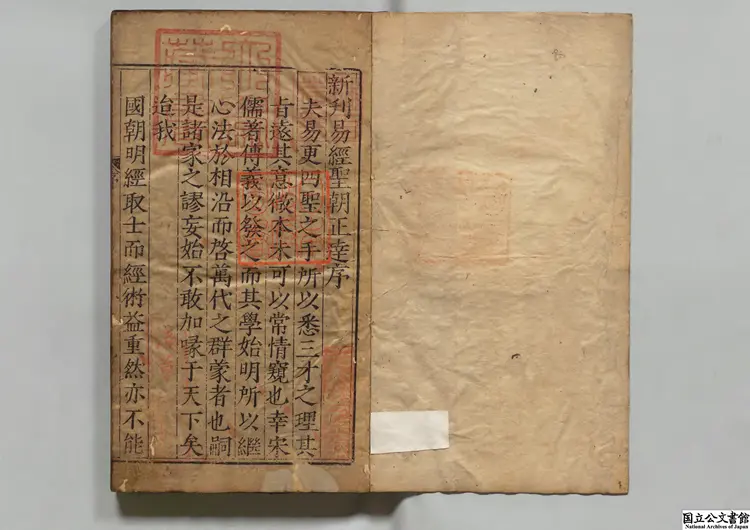 新刊易經聖朝正達序
夫易更四聖之手所以悉三才之理其
旨遠其意微本未可以常情窺也幸宋
儒著傳義以發之而其學始明所以繼
心法於相沿而啓萬代之群蒙者也嗣
是諸家之謬妄始不敢加喙于天下矣
迨我
國朝明經取士而經術益重然亦不能
国立公文書館
National Archives of Japan